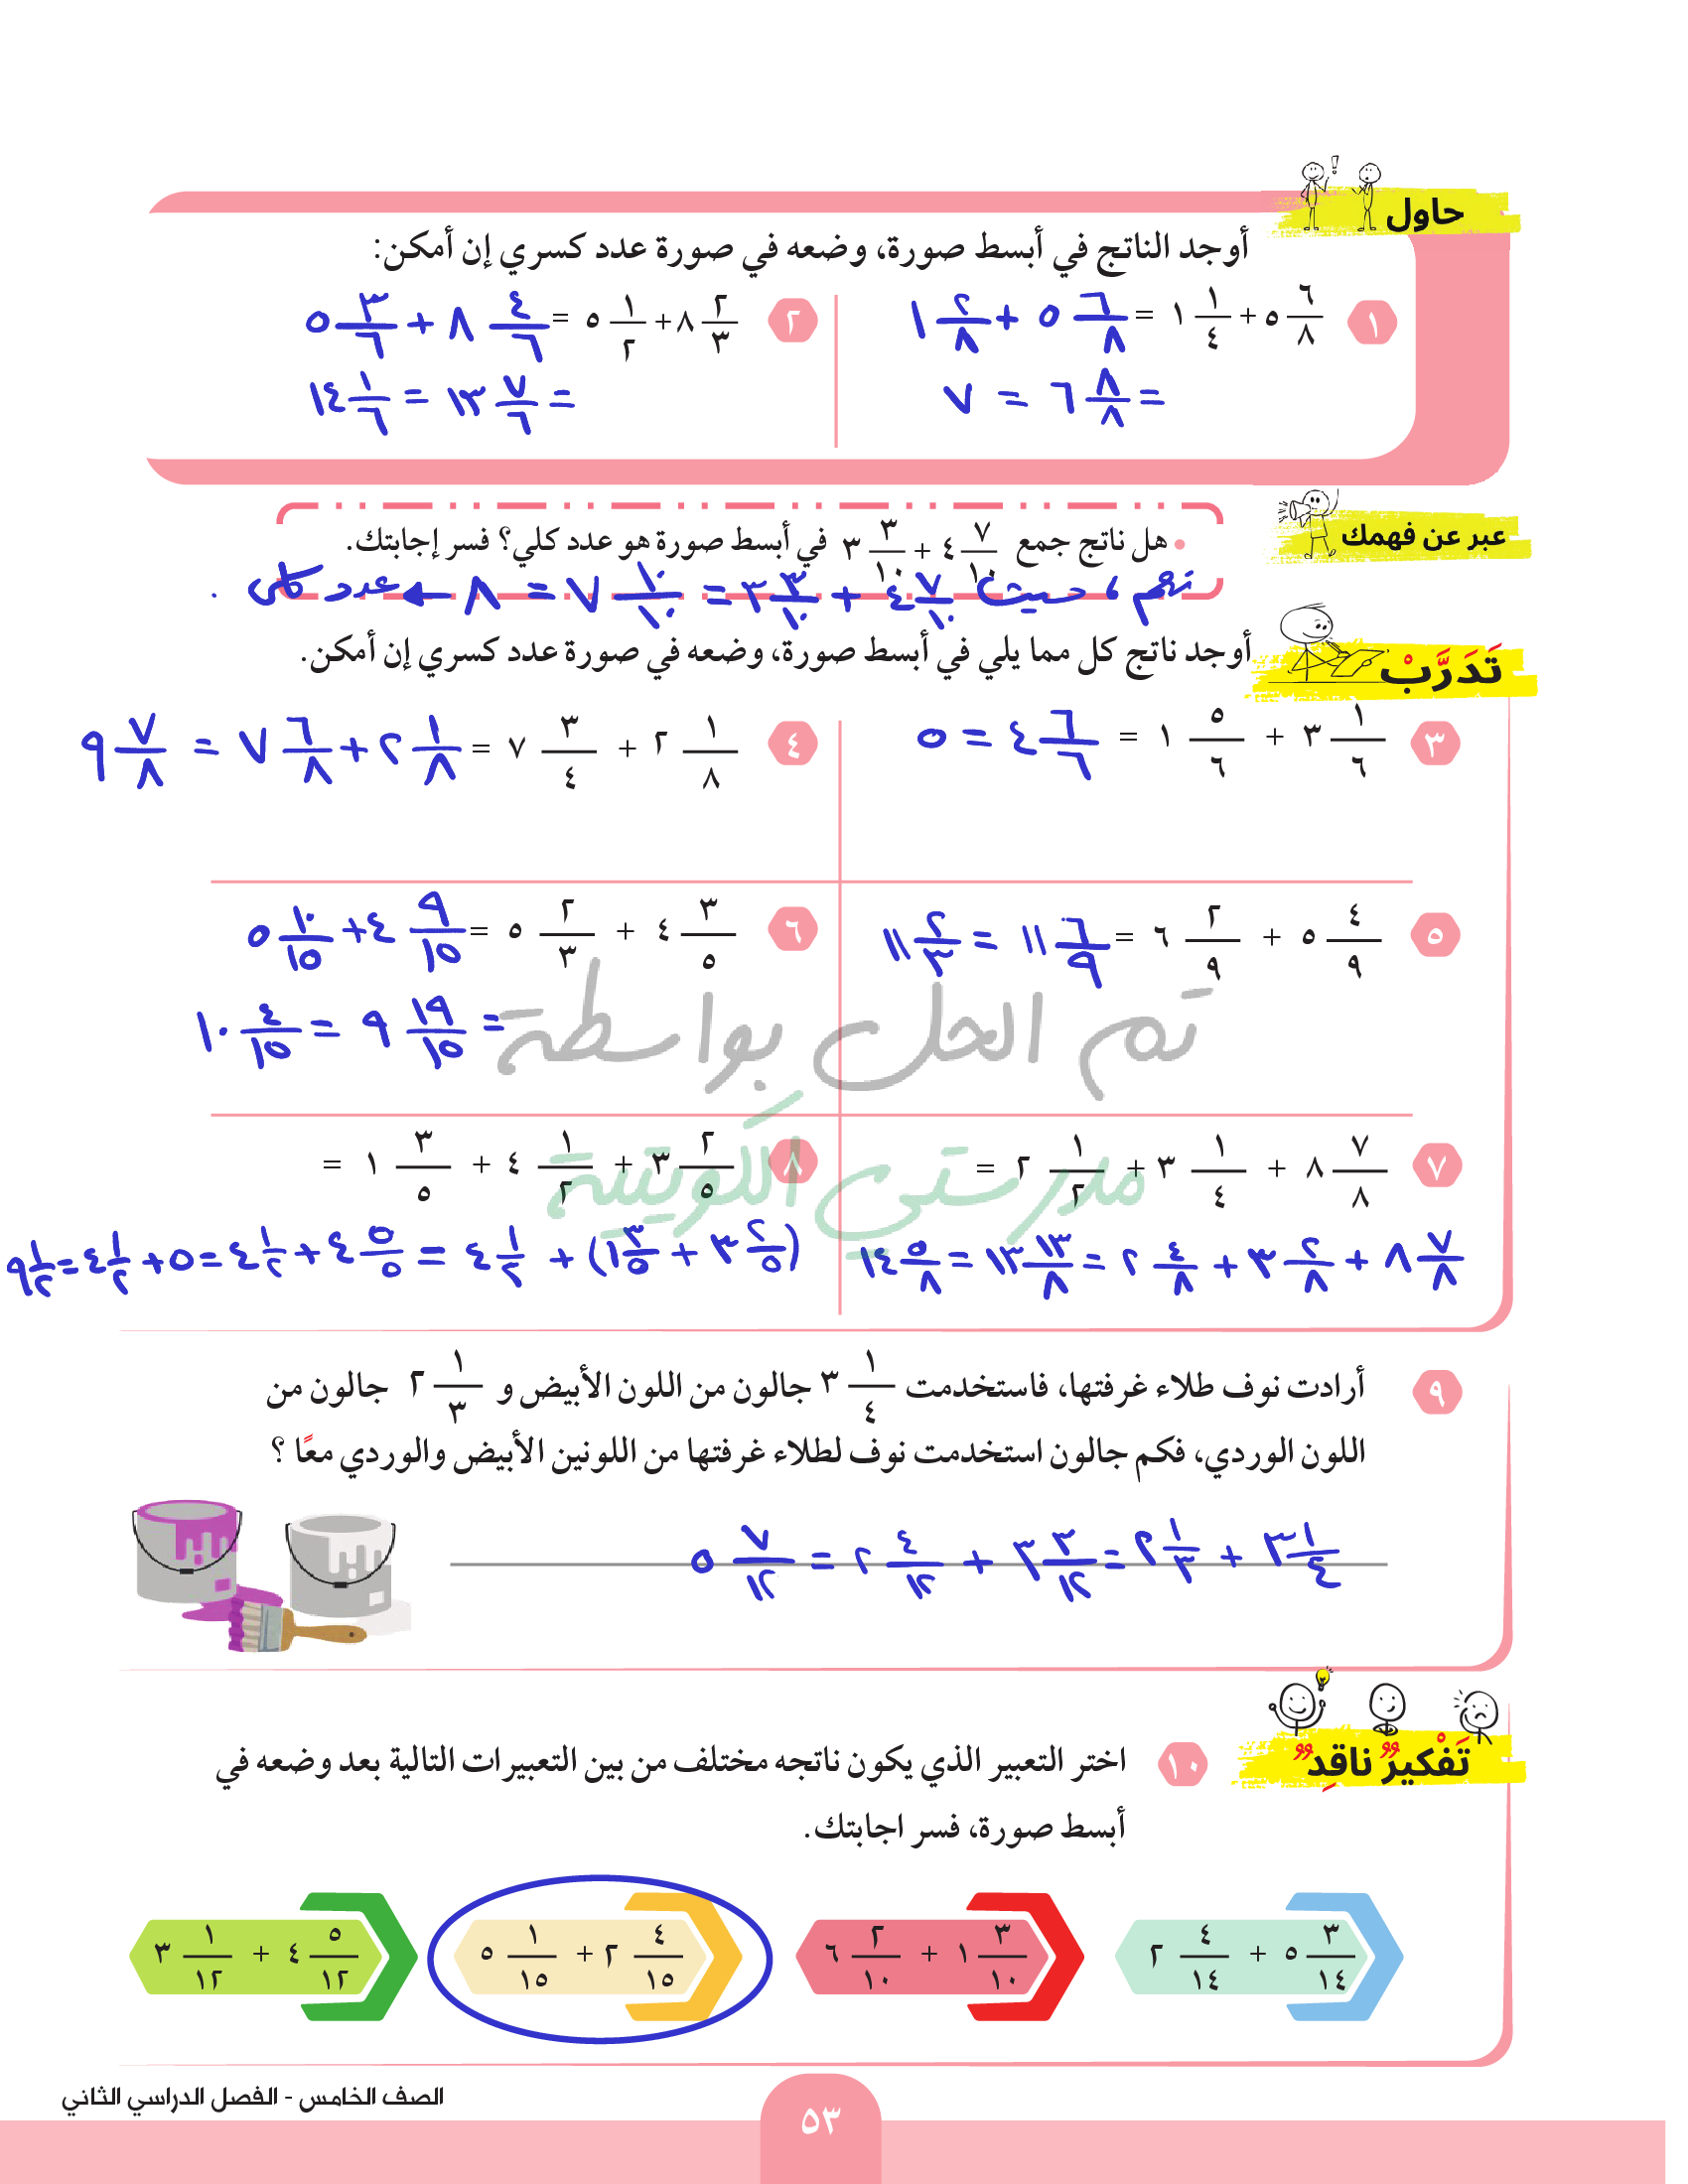 حاول
أوجد الناتج في أبسط صورة، وضعه في صورة عدد كسري إن أمكن:
١ ٥ ٦/٨ + ١ ١/٤ = ٥ ٦/٨ + ١ ٢/٨
= ٦ ٨/٨ = ٧
٢ ٨ ٢/٣ + ٥ ١/٢ = ٨ ٤/٦ + ٥ ٣/٦
= ١٣ ٧/٦ = ١٤ ١/٦
عبر عن فهمك
• هل ناتج جمع ٤ ٧/١٠ + ٣ ٣/١٠ في أبسط صورة هو عدد كلي؟ فسر إجابتك.
نعم، حيث ٤ ٧/١٠ + ٣ ٣/١٠ = ٧ ١٠/١٠ = ٨ ← عدد كلي .
تَدَرَّبْ
أوجد ناتج كل مما يلي في أبسط صورة، وضعه في صورة عدد كسري إن أمكن.
٣ ٣ ١/٦ + ١ ٥/٦ = ٤ ٦/٦ = ٥
٤ ٢ ١/٨ + ٧ ٣/٤ = ٢ ١/٨ + ٧ ٦/٨ = ٩ ٧/٨
٥ ٥ ٤/٩ + ٦ ٢/٩ = ١١ ٦/٩ = ١١ ٢/٣
٦ ٤ ٣/٥ + ٥ ٢/٣ = ٤ ٩/١٥ + ٥ ١٠/١٥
= ٩ ١٩/١٥ = ١٠ ٤/١٥
تم الحل بواسطة
مدرستي الكويتية
٧ ٨ ٧/٨ + ٣ ١/٤ + ٢ ١/٢ =
٨ ٧/٨ + ٣ ٢/٨ + ٢ ٤/٨ = ١٣ ١٣/٨ = ١٤ ٥/٨
٨ ٣ ٢/٥ + ٤ ١/٢ + ١ ٣/٥ =
(٣ ٢/٥ + ١ ٣/٥) + ٤ ١/٢ = ٤ ٥/٥ + ٤ ١/٢ = ٥ + ٤ ١/٢ = ٩ ١/٢
٩ أرادت نوف طلاء غرفتها، فاستخدمت ٣ ١/٤ جالون من اللون الأبيض و ٢ ١/٣ جالون من
اللون الوردي، فكم جالون استخدمت نوف لطلاء غرفتها من اللونين الأبيض والوردي معًا ؟
٣ ١/٤ + ٢ ١/٣ = ٣ ٣/١٢ + ٢ ٤/١٢ = ٥ ٧/١٢
تَفْكيرٌ ناقِدٌ
١٠ اختر التعبير الذي يكون ناتجه مختلف من بين التعبيرات التالية بعد وضعه في
أبسط صورة، فسر اجابتك.
٥ ٣/١٤ + ٢ ٤/١٤
١ ٣/١٠ + ٦ ٢/١٠
٢ ٤/١٥ + ٥ ١/١٥
٤ ٥/١٢ + ٣ ١/١٢
الصف الخامس - الفصل الدراسي الثاني
٥٣